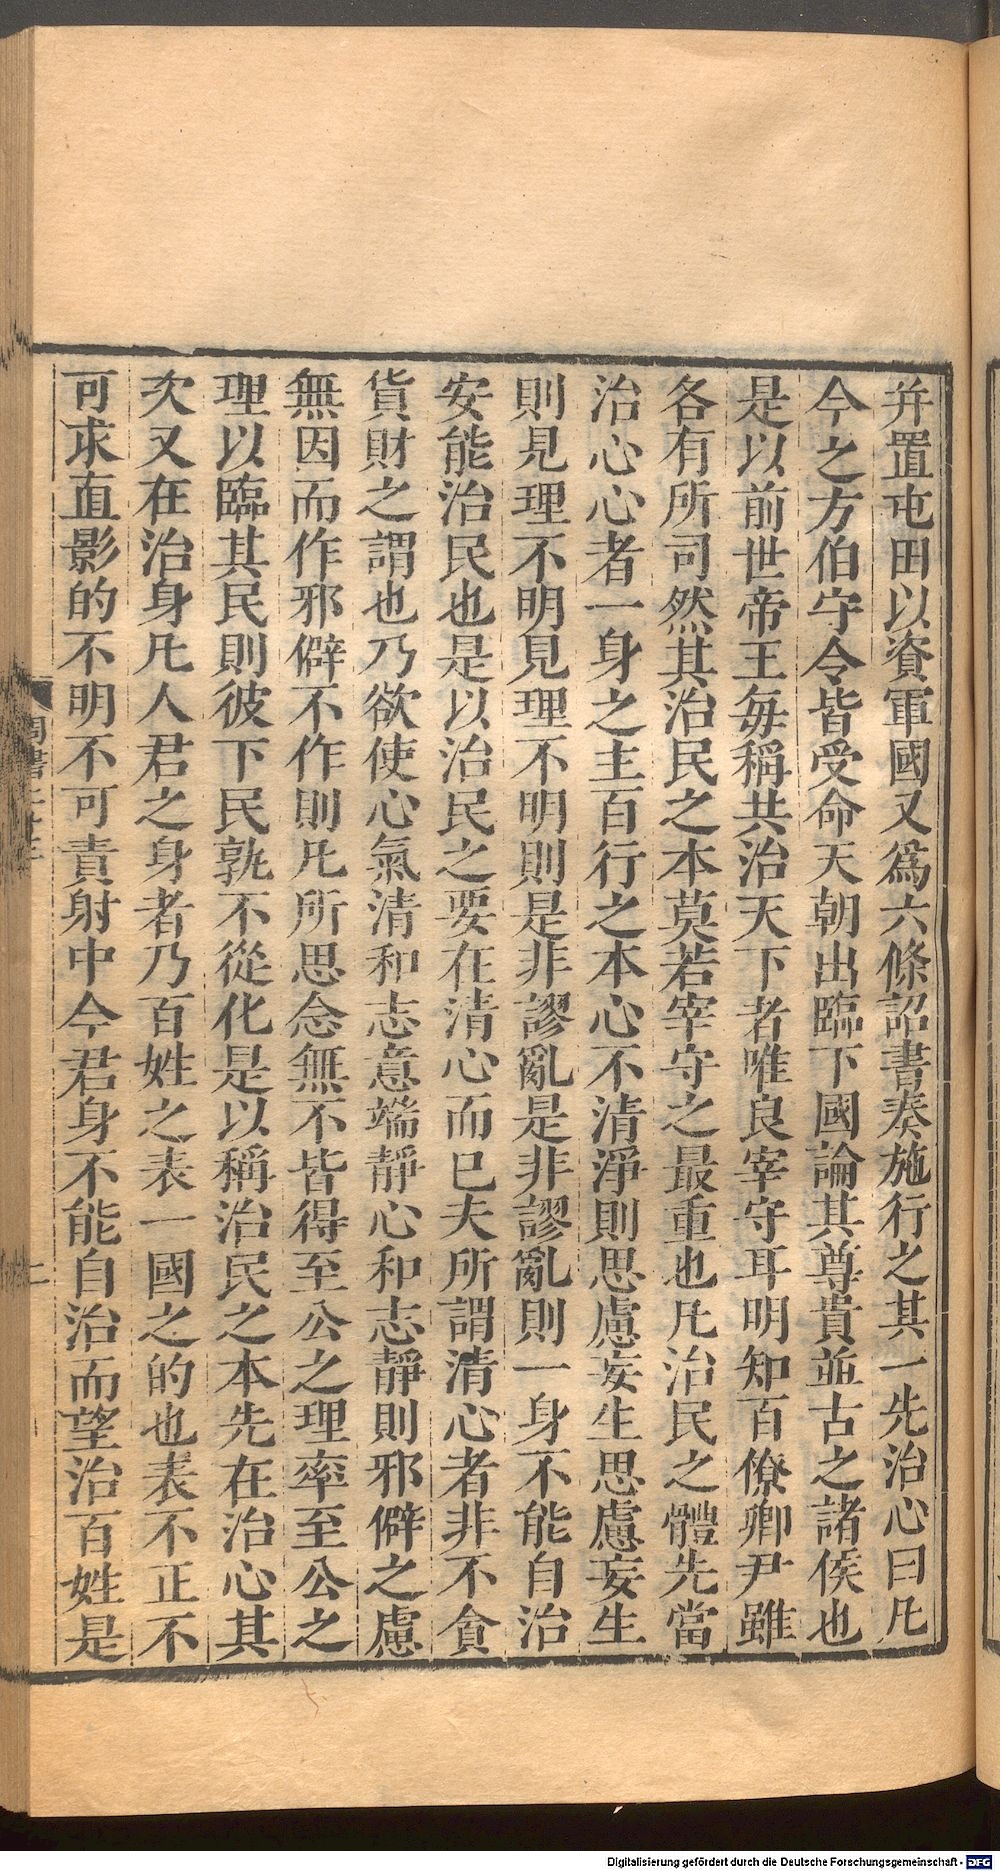 并置屯田以資軍國又爲六條詔書奏施行之其一先治心曰凡
今之方伯守令皆受命天朝出臨下國論其尊貴並古之諸侯也
是以前世帝王每稱共治天下者唯良宰守耳明知百僚卿尹雖
各有所司然其治民之本莫若宰守之最重也凡治民之體先當
治心心者一身之主百行之本心不清淨則思慮妄生思慮妄生
則見理不明見理不明則是非謬亂是非謬亂則一身不能自治
安能治民也是以治民之要在清心而已夫所謂清心者非不貪
貨財之謂也乃欲使心氣清和志意端靜心和志靜則邪僻之慮
無因而作邪僻不作則凡所思念無不皆得至公之理率至公之
理以臨其民則彼下民孰不從化是以稱治民之本先在治心其
次又在治身凡人君之身者乃百姓之表一國之的也表不正不
可求直影的不明不可責射中今君身不能自治而望治百姓是
周書
Digitalisierung gefördert durch die Deutsche Forschungsgemeinschaft - DFG